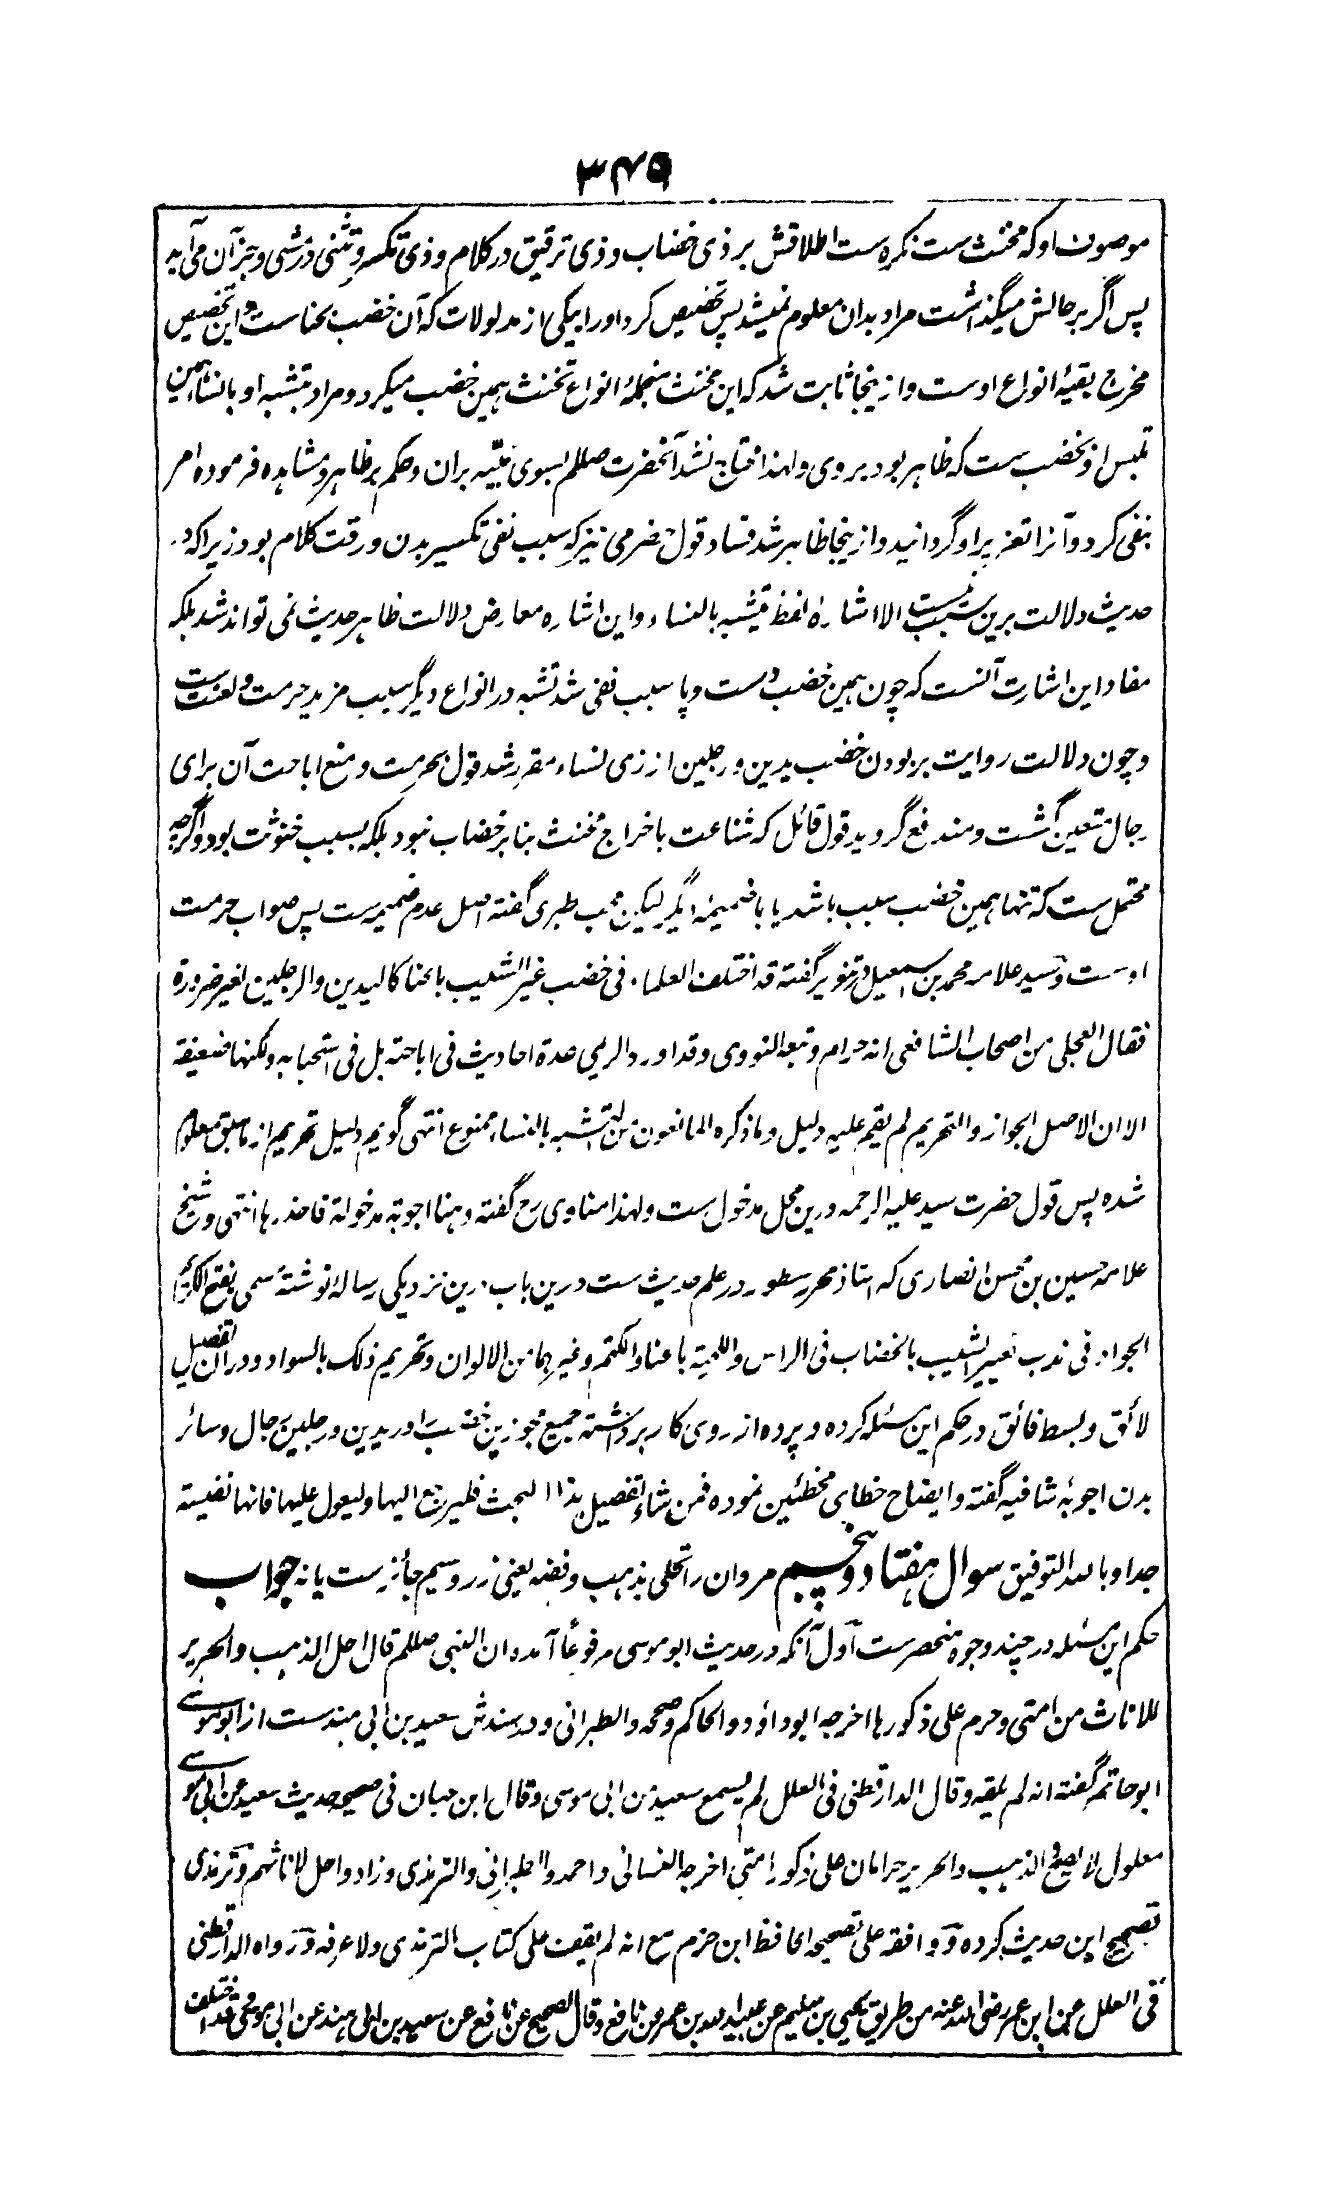 ۳۴۵
موصوف او که مخنث ست نکره ست اطلاقش بر ذی خضاب و ذی ترقیق در کلام و ذی تکسر و تثنی در مشی و جز آن می آید
پس اگر بر حالش میگذاشت مراد بدان معلوم نمیشد پس تخصیص کرد او را بیکی از مدلولات که آن خضب بحناست و این تخصیص
مخرج بقیۀ انواع اوست و ازینجا ثابت شد که این مخنث منجملۀ انواع تخنث همین خضب میکرد و مراد بتشبه او بالنسا همین
تلبس او بخضب ست که ظاهر بود بر وی و لهذا محتاج نشد آنحضرت صلعلم بسوی بینه بران و حکم بر ظاهر و مشاهده فرموده امر
بنفی کرد و آنرا تعزیر او گردانید و ازینجا ظاهر شد فساد قول حضرمی نیز که سبب نفی تکسیر بدن و رقت کلام بود زیرا که در
حدیث دلالت برین سبب نیست الا اشارۀ لفظ یتشبه بالنساء و این اشاره معارض دلالت ظاهر حدیث نمی تواند شد بلکه
مفاد این اشارت آنست که چون همین خضب دست و پا سبب نفی شد تشبه در انواع دیگر سبب مزید حرمت و لعنت ست
و چون دلالت روایت بر بودن خضب یدین و رجلین از زی نساء مقرر شد قول بحرمت و منع اباحت آن برای
رجال متعین گشت و مندفع گردید قول قائل که شناعت باخراج مخنث بنا بر خضاب نبود بلکه بسبب خنوثت بود و اگرچه
محتمل ست که تنها همین خضب سبب باشد یا با ضمیمۀ دیگر لیکن محب طبری گفته اصل عدم ضمیمه ست پس صواب حرمت
اوست و سید علامه محمد بن اسمعیل در تنویر گفته قد اختلف العلماء فی خضب غیر الشیب بالحنا کالیدین والرجلین لغیر ضرورة
فقال العجلی من اصحاب الشافعی انه حرام وتبعه النووی وقد اورد الریمی عدة احادیث فی اباحته بل فی استحبابه ولکنها ضعیفة
الا ان الاصل الجواز والتحریم لم یقم علیه دلیل وما ذکره المانعون من التشبه بالنساء ممنوع انتهی گویم دلیل تحریم از ما سبق معلوم
شده پس قول حضرت سید علیه الرحمه درین محل مدخول ست و لهذا مناوی رح گفته وهنا اجوبة مدخولة فاحذرها انتهی و شیخ
علامه حسین بن محسن انصاری که استاذ محرر سطور در علم حدیث ست درین باب درین نزدیکی رسالۀ نوشتۀ مسمی بفتح الکریم
الجواد فی ندب تغییر الشیب بالخضاب فی الراس واللحیة بالحنا والکتم وغیرهما من الالوان وتحریم ذلک بالسواد و در ان تفصیل
لائق و بسط فائق در حکم این مسئله کرده و پرده از روی کار برداشته جمیع مجوزین خضب را در یدین و رجلین رجال و سائر
بدن اجوبۀ شافیه گفته و ایضاح خطای مخطئین نموده فمن شاء تفصیل هذا البحث فلیرجع الیها ولیعول علیها فانها نفیسة
جدا وبالله التوفیق سوال هفتاد و پنجم مردان را تحلی بذهب و فضه یعنی زر و سیم جائز ست یا نه جواب
حکم این مسئله در چند وجوه منحصر ست اول آنکه در حدیث ابو موسی مرفوعاً آمده ان النبی صلعلم قال احل الذهب والحریر
للاناث من امتی وحرم علی ذکورها اخرجه ابو داؤد والحاکم وصححه والطبرانی و در سندش سعید بن ابی هند ست از ابو موسے
ابو حاتم گفته انه لم یلقه وقال الدارقطنی فی العلل لم یسمع سعید من ابی موسی وقال ابن حبان فی صحیحه حدیث سعید عن ابی موسے
معلول لا یصح الذهب والحریر حرامان علی ذکور امتی اخرجه النسائی واحمد والطبرانی والترمذی وزاد واحل لاناثهم و ترمذی
تصحیح این حدیث کرده و وافقه علی تصحیحه الحافظ ابن حزم مع انه لم یقف علی کتاب الترمذی ولا عرفه و رواه الدارقطنی
فی العلل عن ابن عمر رضی الله عنه من طریق یحیی بن سلیم عن عبید الله بن عمر من نافع وقال الصحیح عن نافع عن سعید بن ابی هند عن ابی موسی وقد اختلف